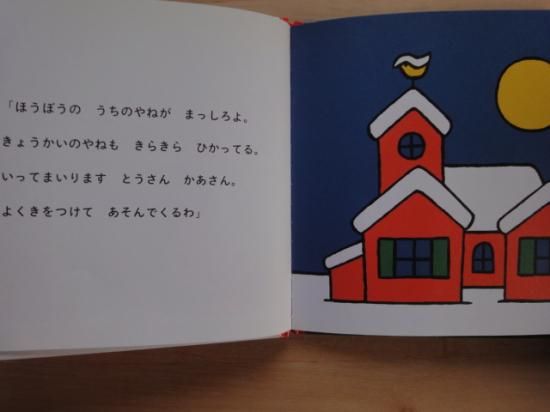 「ほうぼうの　うちのやねが　まっしろよ。
きょうかいのやねも　きらきら　ひかってる。
いってまいります　とうさん　かあさん。
よくきをつけて　あそんでくるわ」